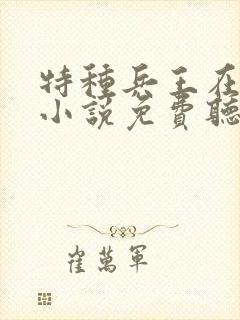 特種兵王在
小說免費聽
崔萬軍